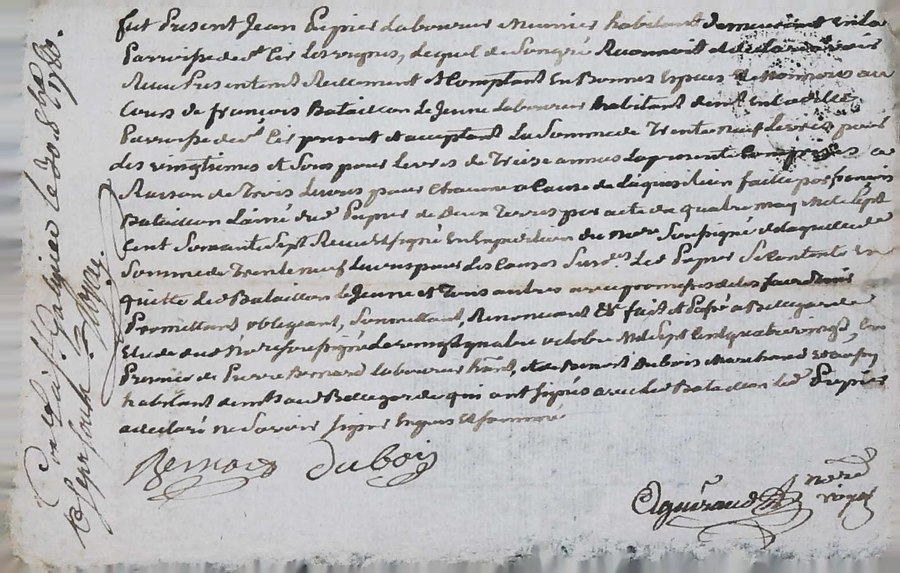 fut Present Jean Pupier laboureur Meunier habitant demeurant en la
Parroisse de St Cir les vignes, lequel de Son gré Reconnoit et
Receu Presentement Reellement et Comptant En Bonnes Especes de Monnoye au
Cours de françois Bataillon Le Jeune laboureur habitant en
Parroisse de St Cir present et acceptant La Somme de Trente neuf Livres pour
des vingtiemes et Sous pour Livres de Treize années La presente Comprise a
Raison de Trois Livres pour Chacune a Cause de faitte par françois
Bataillon L'ainé dud Pupier de Deux Terres par acte du quatre may Mil Sept
Cent Soixante Sept Receu et signé du Nore Soussigné de laquelle
Somme de Trente neuf Livres pour les Causes Susdes Led Pupier Se Contente en
quitte Led Bataillon Le Jeune et Tous autres avec promesses de les faire Tenir
Promettant obligeant, Soumettant, Renonceant &c fait et Passé a Bellegarde
Etude dud Nore soussigné le vingt quatre octobre Mil Sept Cent quatre vingt, En
Presence de Pierre Bernard laboureur habt, et de Benoit Dubois Marchand
habitant aud Bellegarde qui ont signés avec Led Bataillon Led Pupier
a declaré ne Scavoir signer Enquis Et Sommé
Bernard Dubois
Aguiraud Nore Royal
Conllé a St Galmier Le 30 8bre 1780.